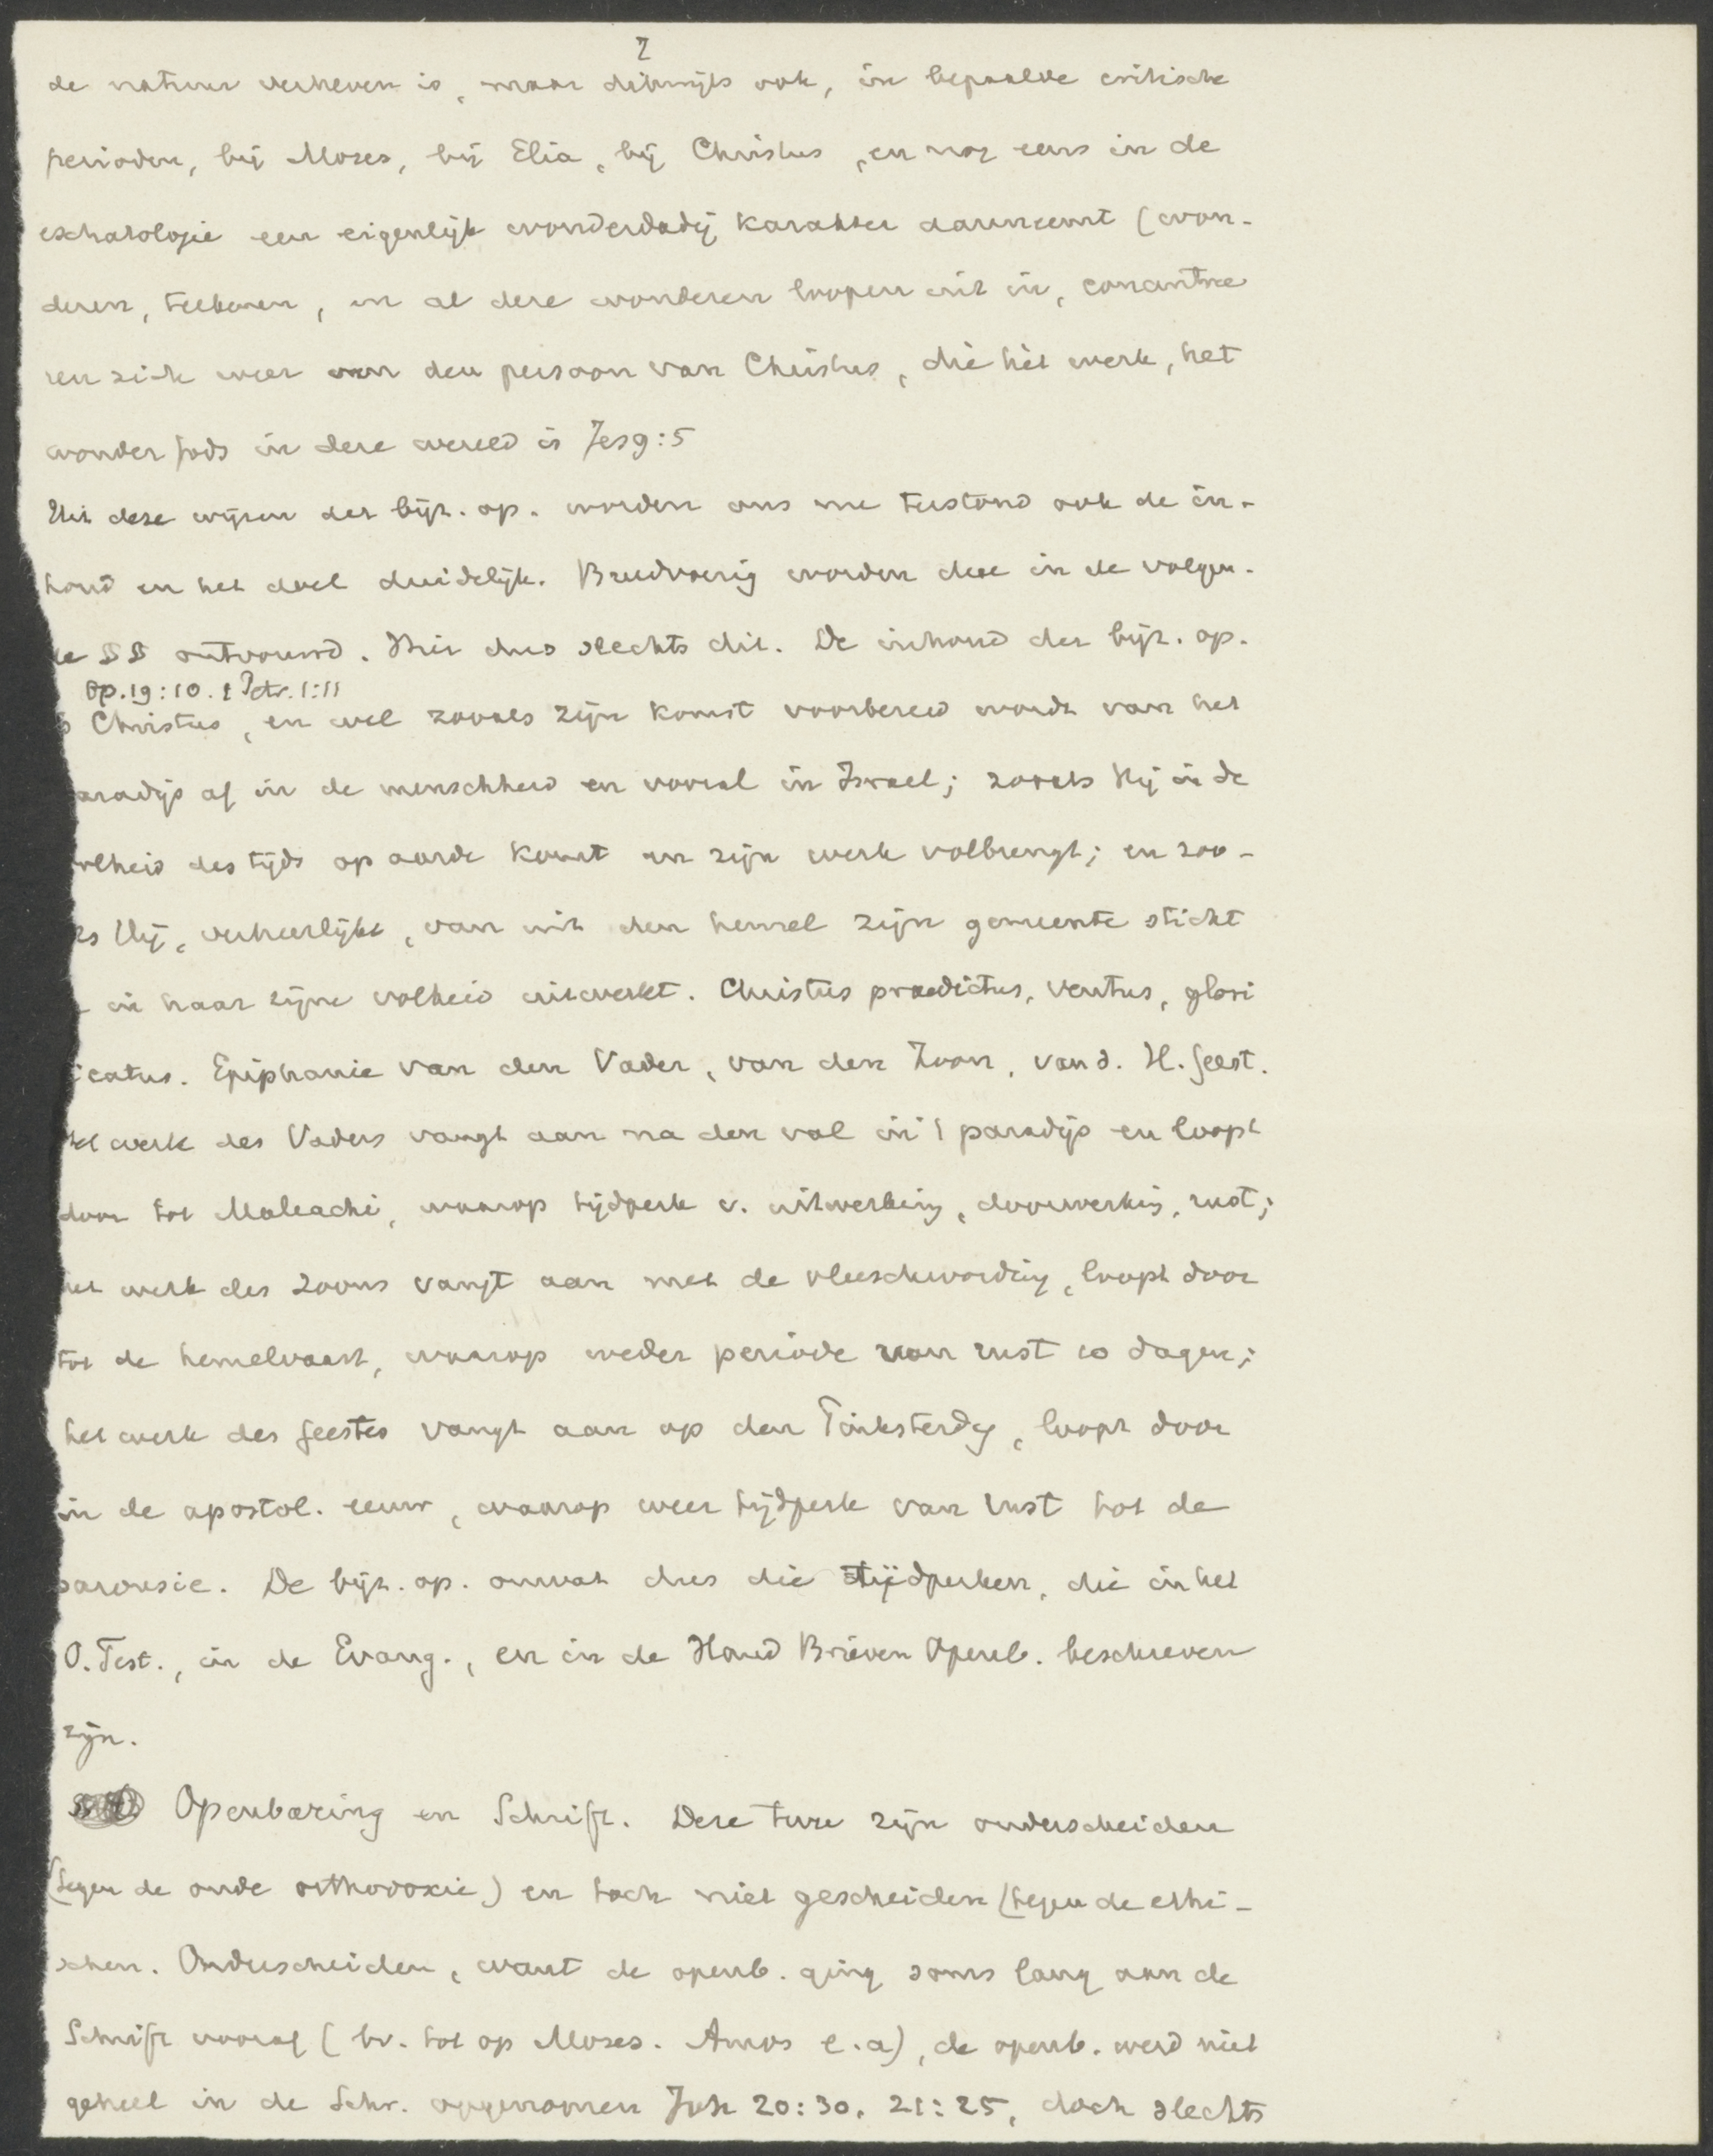 7
de natuur verheven is, maar dikwijls ook, in bepaalde critische
perioden, bij Mozes, bij Elia, bij Christus, en nog eens in de
eschatologie een eigenlijk wonderdadig karakter aanneemt (won-
deren, teekenen, en al deze wonderen loopen uit in, concentree
ren zich weer den persoon van Christus, die hèt werk, het
wonder Gods in deze wereld is Jes 9:5
Uit deze wijzen der bijz. op. worden ons nu terstond ook de in-
houd en het doel duidelijk. Breedvoerig worden deze in de volgen-
de §§ ontvouwd. Hier dus slechts dit. De inhoud der bijz. op.
Op. 19:10. 1 Petr. 1:11
is Christus, en wel zooals zijn komst voorbereid wordt van het
aradijs af in de menschheid en vooral in Israel; zooals Hij in de
olheid des tijds op aarde komt en zijn werk volbrengt; en zoo-
ls Hij, verheerlijkt, van uit den hemel zijn gemeente sticht
in haar zijne volheid uitwerkt. Christus praedictus, ventus, glori
icatus. Epiphanie van den Vader, van den Zoon, van d. H. Geest.
Het werk des Vaders vangt aan na den val in 't paradijs en loopt
door tot Maleachi, waarop tijdperk v. uitwerking, doorwerking, rust;
het werk des Zoons vangt aan met de vleeschwording, loopt door
tot de hemelvaart, waarop weder periode van rust 10 dagen;
het werk des Geestes vangt aan op den Pinksterdag, loopt door
in de apostol. eeuw, waarop weer tijdperk van rust tot de
parousie. De bijz. op. omvat dus die tijdperken, die in het
O. Test., in de Evang., en in de Hand Brieven Openb. beschreven
zijn.
Openbaring en Schrift. Deze twee zijn onderscheiden
(tegen de oude orthodoxie) en toch niet gescheiden (tegen de ethi-
schen. Onderscheiden, want de openb. ging soms lang aan de
Schrift vooraf (bv. tot op Mozes. Amos e.a), de openb. werd niet
geheel in de Schr. opgenomen Joh 20:30. 21:25, doch slechts